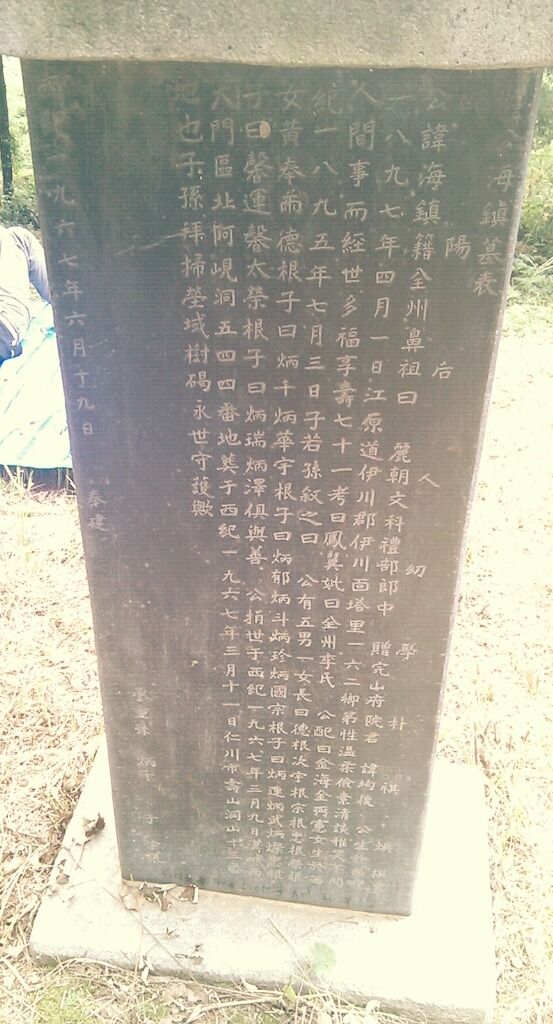 公海鎭墓表
陽 后人 幼學 朴祺
公諱海鎭籍全州鼻祖曰 麗朝文科禮部郎中 贈完山府院君 諱均後 公生於西紀
一八九七年四月一日江原道伊川郡伊川面塔里一六二鄕第性溫柔儉素淸談
人間事而經世多福享壽七十一考曰鳳翼妣曰全州李氏 公配曰金海金 女生於西
紀一八九五年七月三日子若孫敍之曰 公有五男一女長曰德根次宇根宗根 榮根
女黃奉 德根子曰炳千炳華宇根子曰炳郁炳斗炳珍炳國宗根子曰炳運炳武炳 根
子曰馨運馨太榮根子曰炳瑞炳澤俱與善 公捐世于西紀一九六七年三月九日
大門區北阿峴洞五四四番地葬于西紀一九六七年三月十一日仁川市 山洞山十三
地也子孫拜掃塋域樹碣永世守護歟
西紀一九六七年六月十九日 奉建
孫 炳 子 根